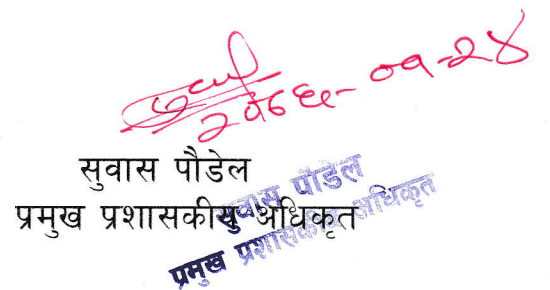 २०८६-०१-२४
सुवास पौडेल
प्रमुख प्रशासकीय अधिकृत
सुवास पौडेल
प्रमुख प्रशासकीय अधिकृत